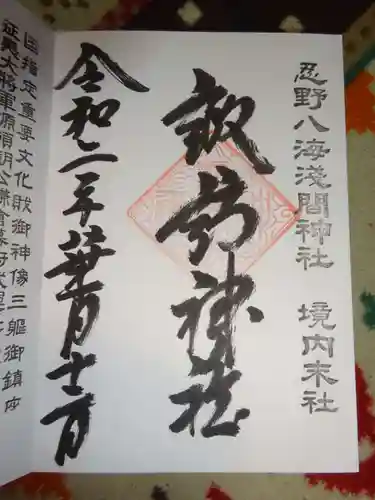 忍野八海淺間神社 境内末社
神社
令和二年葉月十二日
国指定重要文化財御神像三軀御鎮座
征夷大将軍源頼朝公鎌倉幕府